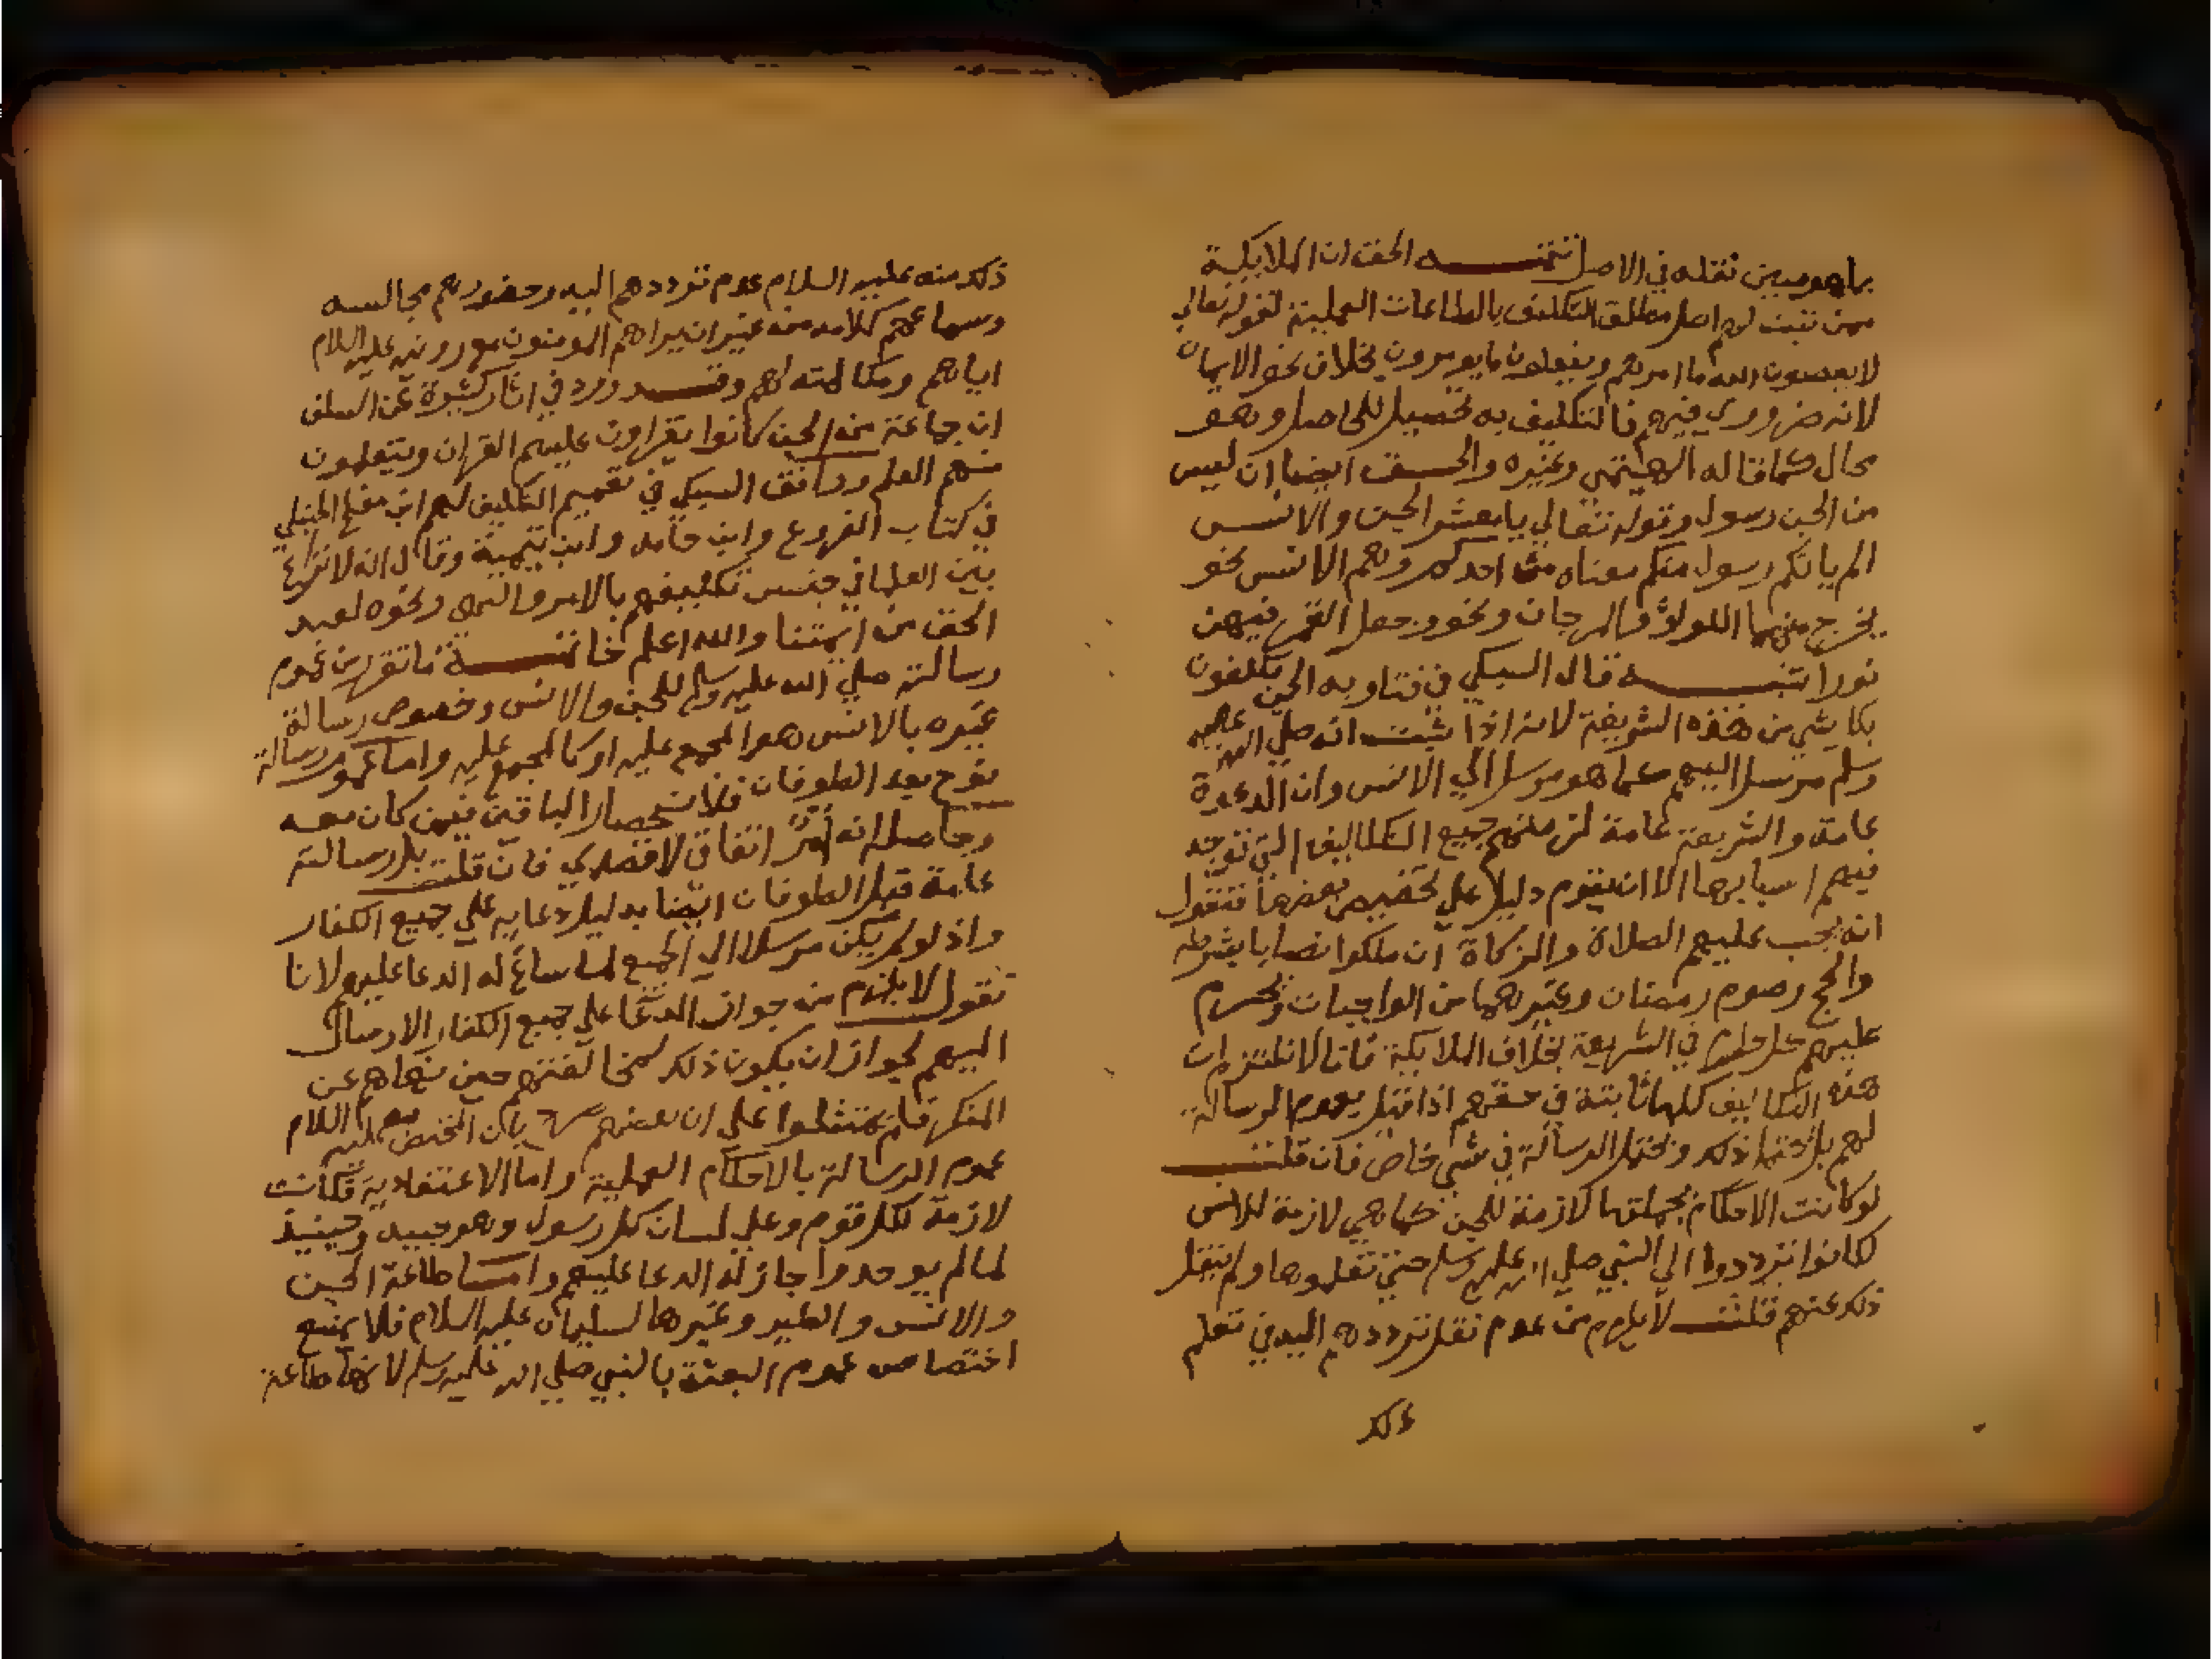 بما هو مبين نقله في الاصل تتمـــه الحق ان الملايكة
ممن ثبت لهم اصل مطلق التكليف بالطاعات العملية لقوله تعالي
لا يعصون الله ما امرهم ويفعلون ما يومرون بخلاف نحو الايمان
لانه ضروري فيهم فالتكليف به تحصيل للحاصل وهو
محال كما قاله الهيتمي وغيره والحـــق ايضا ان ليس
من الجن رسول وقوله تعالي يا معشر الجن والانـــس
الم ياتكم رسول منكم معناه من احدكم وهم الانس نحو
يخرج منهما اللولؤ والمرجان ونحو وجعل القمر فيهن
نورا تتمـــه قال السبكي في فتاويه الجن مكلفون
بكل شي من هذه الشريفة لانه اذا ثبت انه صلي الله عليه
وسلم مرسل اليهم كما هو مرسل الي الانس وان الدعوة
عامة والشريعة عامة لزمتهم جميع التكاليف التي توجد
فيهم اسبابها الا ان يقوم دليل علي تخصيص بعضها فنقول
انه يجب عليهم الصلاة والزكاة ان ملكوا نصابا بشرطه
والحج وصوم رمضان وغيرهما من الواجبات ويحرم
عليهم كل حرام في الشريعة بخلاف الملايكة فانا لا نلتزم ان
هذه التكاليف كلها ثابتة في حقهم اذا قيل بعموم الرسالة
لهم بل يحتمل ذلك ويحتمل الرسالة في شي خاص فان قلت
لو كانت الاحكام بجملتها لازمة للجن كما هي لازمة للانس
لكانوا يترددوا الي النبي صلي الله عليه وسلم حتي تعلموها ولم ينقل
ذلك عنهم قلت لا يلزم من عدم نقل ترددهم اليه في تعلم
ذلك منه عليه السلام عدم ترددهم اليه وحضورهم مجالسه
وسماعهم كلامه من غير ان يراهم المومنون مع رويته عليه السلام
اياهم ومكالمته لهم وقـــد ورد في اثار كثيرة عن السلف
ان جماعة من الجن كانوا يقراون عليهم القران ويتعلمون
منهم العلم ووافق السبكي في تعميم التكليف لهم ابن مفلح الحنبلي
في كتاب الفروع وابن حامد وابن تيمية وقال انه لا نزاع
بين العلما في جنس تكليفهم بالامر والنهي ونحوه لعبد
الحق من ايمتنا والله اعلم خاتمـــة ما تقرر من عموم
رسالته صلي الله عليه وسلم للجن والانس وخصوص رسالة
غيره بالانس هو المجمع عليه او كالمجمع عليه واما عموم رسالة
نوح بعد الطوفان فلانحصار الباقين فيمن كان معه
وحاصله انه امر اتفاقي لا قصدي فان قلت بل رسالته
عامة قبل الطوفان ايضا بدليل دعايه علي جميع الكفار
واذ لو لم يكن مرسلا الي الجميع لما ساغ له الدعا عليهم لانا
نقول لا يلزم من جواز الدعا علي جميع الكفار الارسال
اليهم لجواز ان يكون ذلك لمخالفتهم حين نهاهم عن
المنكر فلم يمتثلوا علي ان بعضهم بان المختص به عليه السلام
عموم الرسالة بالاحكام العملية واما الاعتقادية فكانت
لازمة لكل قوم وعلي لسان كل رسول وهو جيد وحينيذ
لما لم يوحدوا جاز له الدعا عليهم وامـــا طاعة الجن
والانس والطير وغيرها لسليمان عليه السلام فلا يمنع
اختصاص عموم البعثة بالنبي صلي الله عليه وسلم لانها طاعة